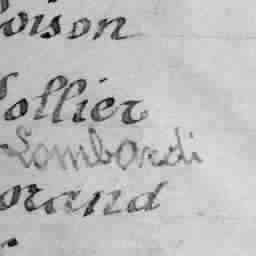 oison
ollier
Lombardi
orand